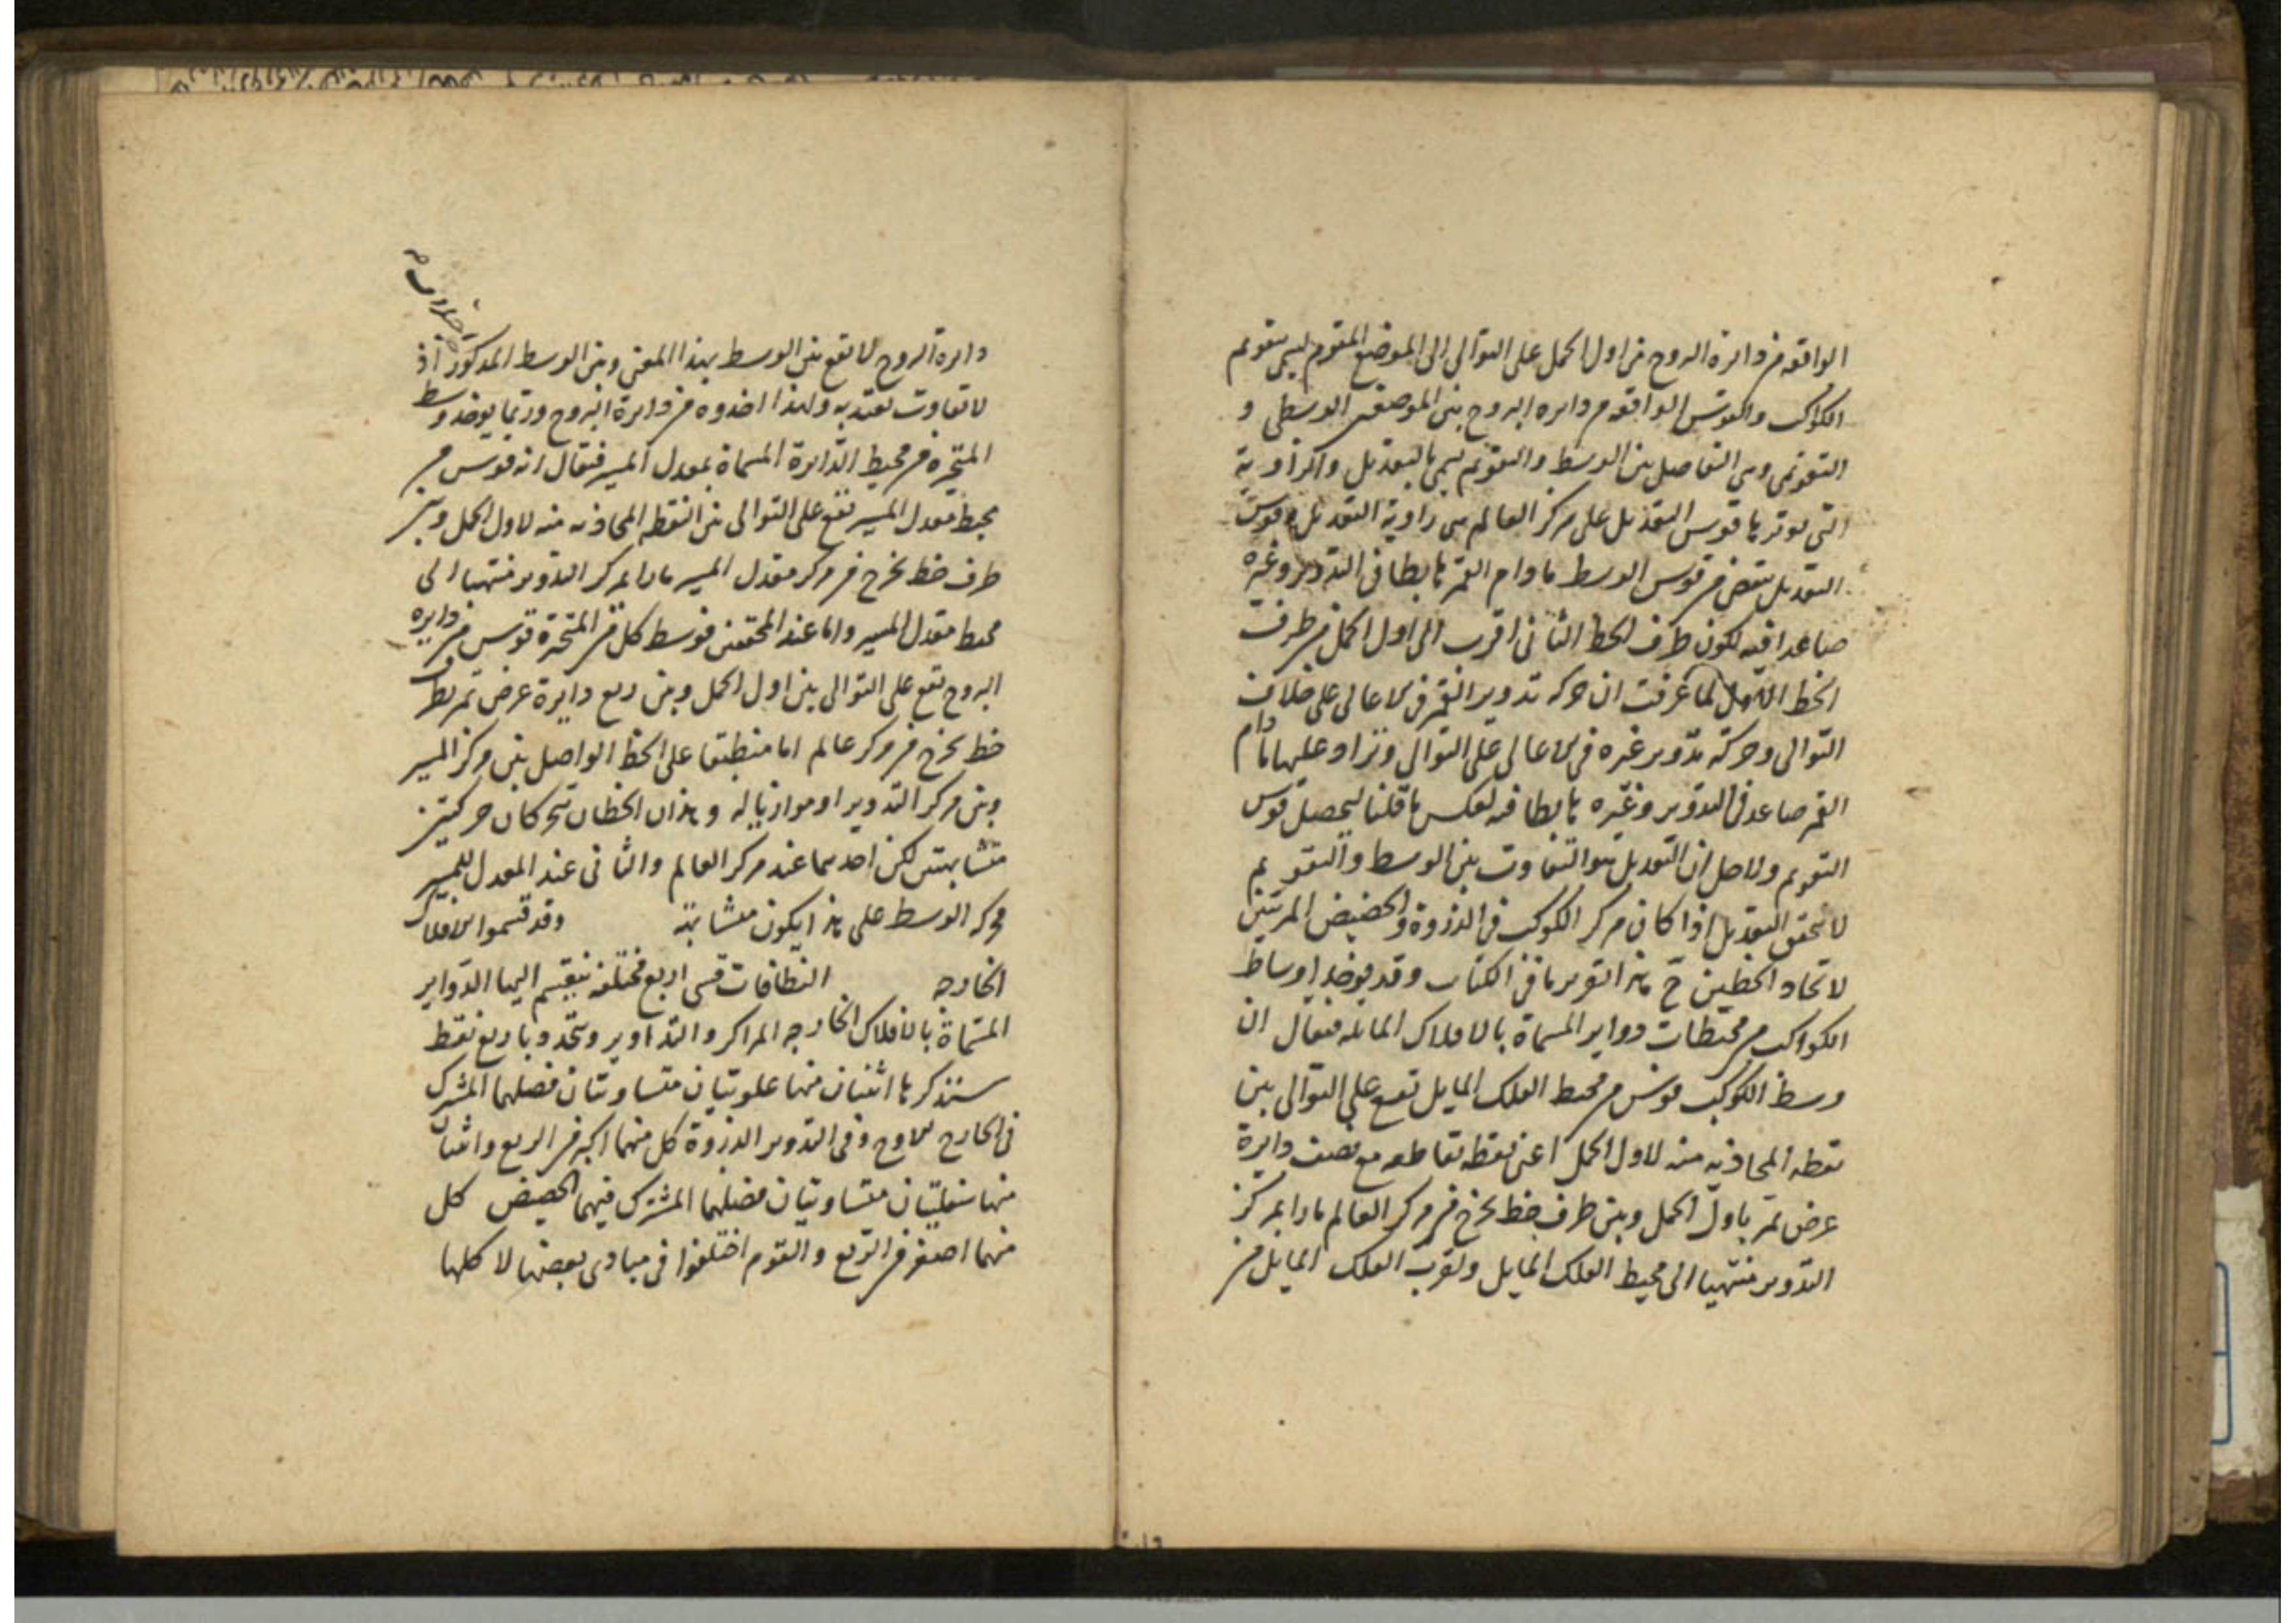 الواقعة من دائرة البروج من اول الحمل على التوالى الى الموضع المقوم يسمى بتقويم
الكواكب والقوس الواقعة من دايره البروج بين الموضعين الوسطى و
التقويمى وهى التفاضل بين الوسط والتقويم يسمى بالتعديل والزاوية
التى يوترها قوس التعديل على مركز العالم هى زاوية التعديل وقوس
التعديل ينقص من قوس الوسط مادام القمر هابطا فى التدوير وغيره
صاعدا فيه لكون طرف الخط الثانى اقرب الى اول الحمل من طرف
الخط الاول لما عرفت ان حركه تدوير القمر فى الاعالى على خلاف
التوالى وحركة تدوير غيره فى الاعالى على التوالى وتزاد عليها مادام
القمر صاعد فى التدوير وغيره هابطا فيه لعكس ما قلنا ليحصل قوس
التقويم والاصل ان التعديل هو التفاوت بين الوسط والتقويم
لا يتحقق التعديل اذا كان مركز الكوكب فى الذروة والحضيض المرئيين
لاتحاد الخطين ح هذا تقرير ما فى الكتاب وقد يوخذ اوساط
الكواكب من محيطات دواير المسماة بالافلاك المائله فيقال ان
وسط الكوكب قوس من محيط الفلك المايل تقع على التوالى بين
نقطه المحاذيه منه لاول الحمل اعنى نقطه تقاطعه مع نصف دايرة
عرض تمر باول الحمل وبين طرف خط يخرج من مركز العالم مارا بمركز
التدوير منتهيا الى محيط الفلك المايل ولقرب الفلك المايل من
دايرة البروج لا يقع بين الوسط بهذا المعنى وبين الوسط المذكور اذ
لا تفاوت يعتد به ولهذا اخذوه من دايرة البروج وربما يوخذ وسط
المتحيره من محيط الدايرة المسماة بمعدل المسير فيقال انه قوس من
محيط معدل المسير تقع على التوالى بين النقطه المحاذيه منه لاول الحمل وبين
طرف خط يخرج من مركز معدل المسير مارا بمركز التدوير منتهيا الى
محيط معدل المسير واما عند المحققين فوسط كل من المتحيرة قوس من دايره
البروج تقع على التوالى بين اول الحمل وبين ربع دايرة عرض تمر بطرف
خط يخرج من مركز عالم اما منطبقا على الخط الواصل بين مركز المسير
وبين مركز التدوير او موازيا له وهذان الخطان يتحركان حركتين
متشابهتين لكن احدهما عند مركز العالم والثانى عند المعدل للمسير
فحركه الوسط على هذا يكون متشابهة وقد قسموا الافلاك
الخارجه النطاقات قسى اربع مختلفه ينقسم اليها الدواير
المسماة بالافلاك الخارجه المراكز والتداوير وتتحدد باربع نقط
سنذكرها اثنتان منها علويتان متساويتان فصلهما المشترك
فى الخارج الاوج وفى التدوير الذروة كل منهما اكبر من الربع واثنتان
منها سفليتان متساويتان فصلهما المشترك فيهما الحضيض كل
منهما اصغر من الربع والقوم اختلفوا فى مبادى بعضها لا كلها